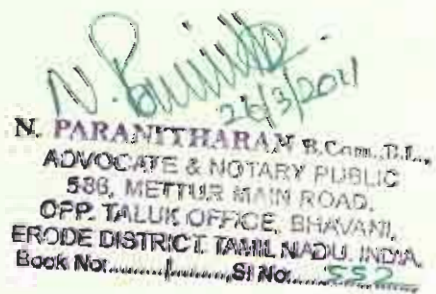 26/3/2011
N. PARANITHARAN B.Com.,B.L.,
ADVOCATE & NOTARY PUBLIC
586, METTUR MAIN ROAD,
OPP. TALUK OFFICE, BHAVANI,
ERODE DISTRICT. TAMIL NADU. INDIA.
Book No:.........1.........Sl No.......552......